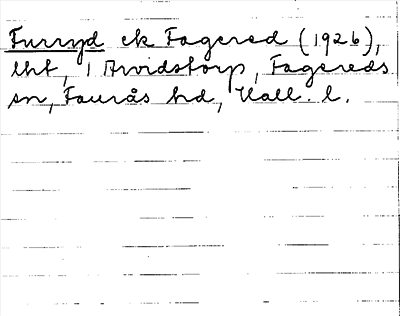 Furryd ek Fagered (1926),
lht, 1 Arvidstorp, Fagereds
sn, Faurås hd, Hall. l.